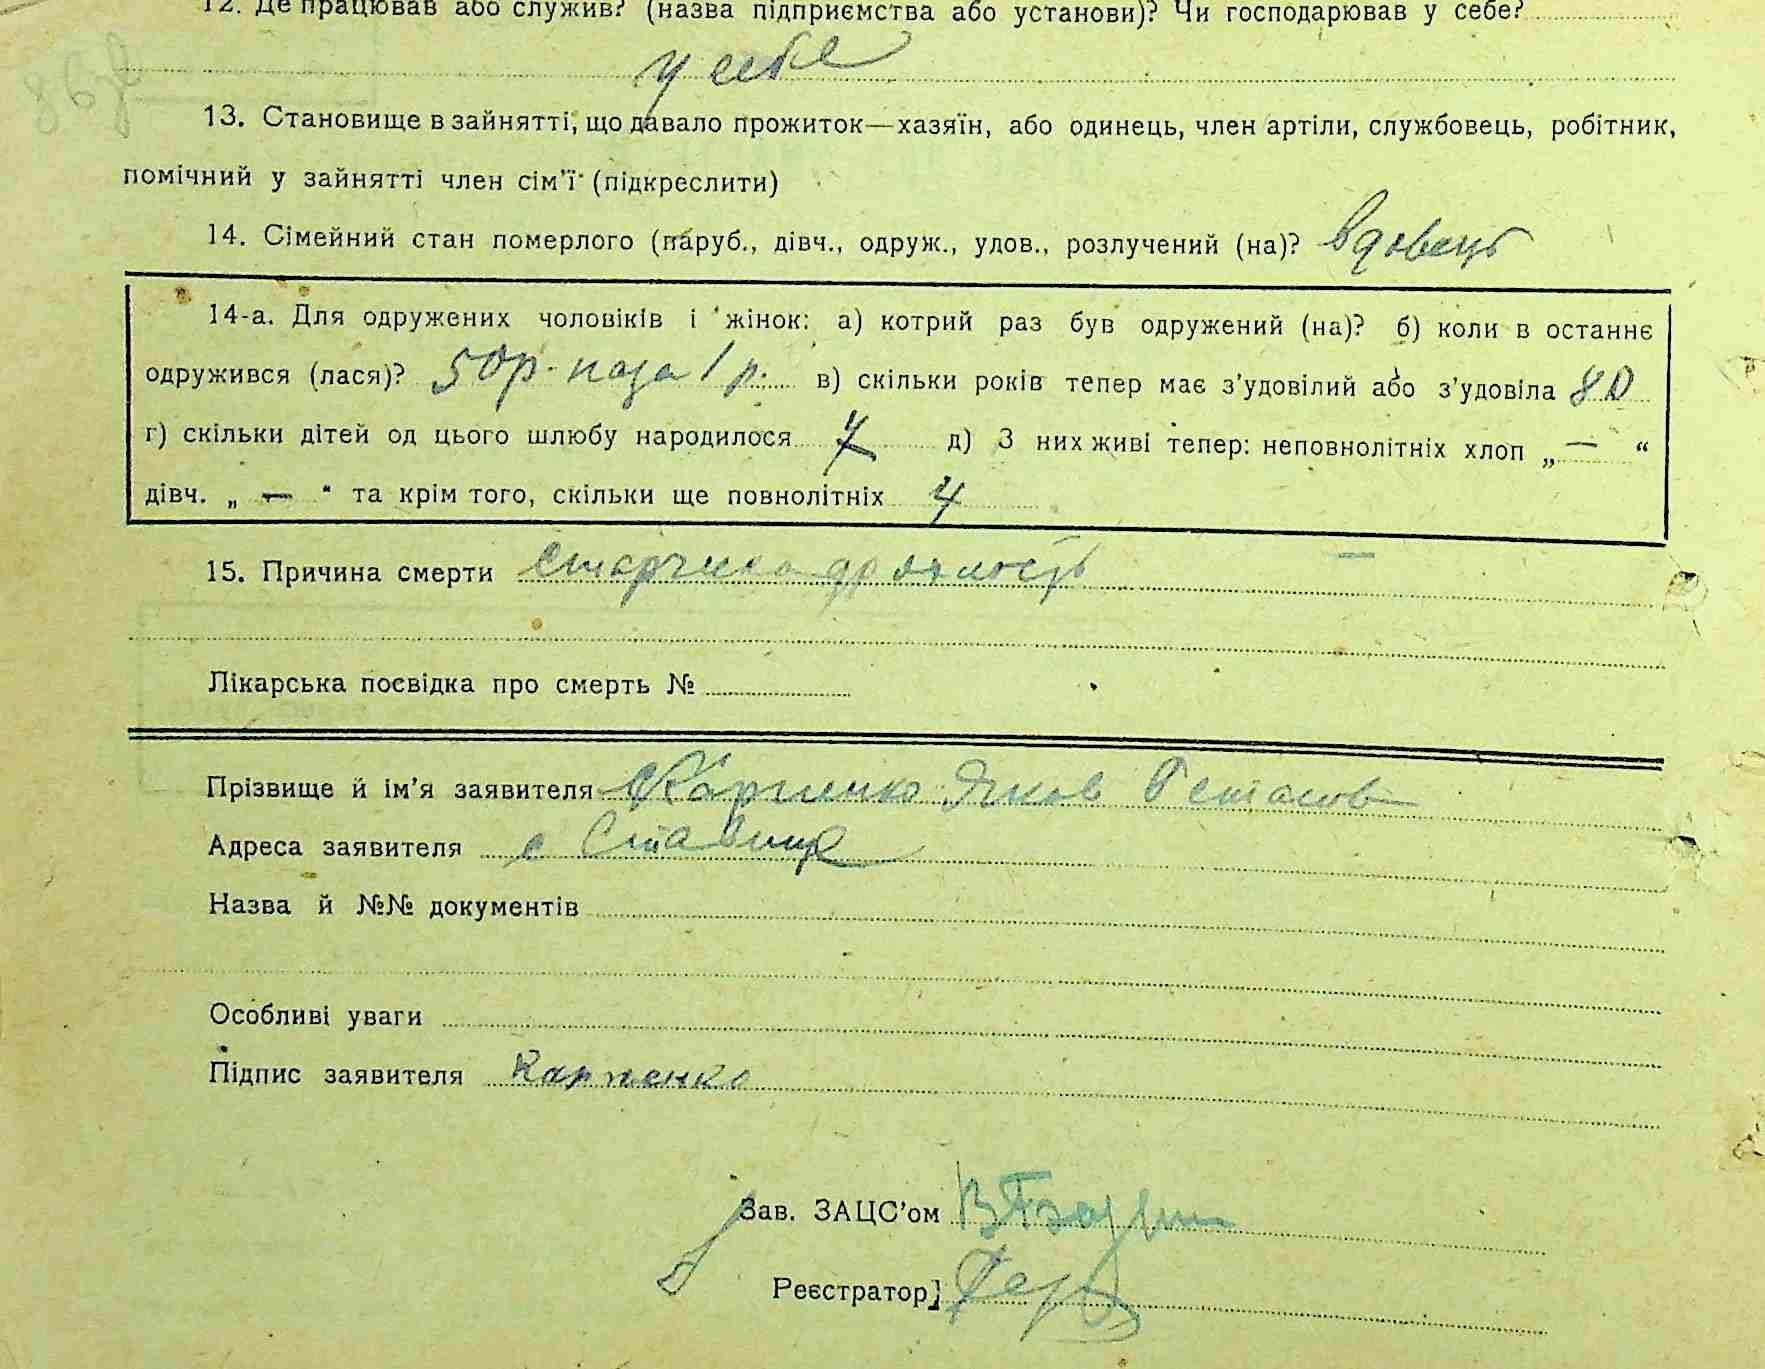 12. Де працював або служив? (назва підприємства або установи)? Чи господарював у себе?
у себе
13. Становище в зайнятті, що давало прожиток—хазяїн, або одинець, член артіли, службовець, робітник,
помічний у зайнятті член сім'ї (підкреслити)
14. Сімейний стан померлого (паруб., дівч., одруж., удов., розлучений (на)? вдовець
14-а. Для одружених чоловіків і жінок: а) котрий раз був одружений (на)? б) коли в останнє
одружився (лася)? 50 р. наза 1 р. в) скільки років тепер має з'удовілий або з'удовіла 80
г) скільки дітей од цього шлюбу народилося 7 д) З них живі тепер: неповнолітніх хлоп „ — “
дівч. „ — “ та крім того, скільки ще повнолітніх 4
15. Причина смерти старчиска дряхлость
Лікарська посвідка про смерть №
Прізвище й ім'я заявителя Карпенко Яков
Адреса заявителя с Ставище
Назва й №№ документів
Особливі уваги
Підпис заявителя Карпенко
Зав. ЗАЦС'ом
Реєстратор